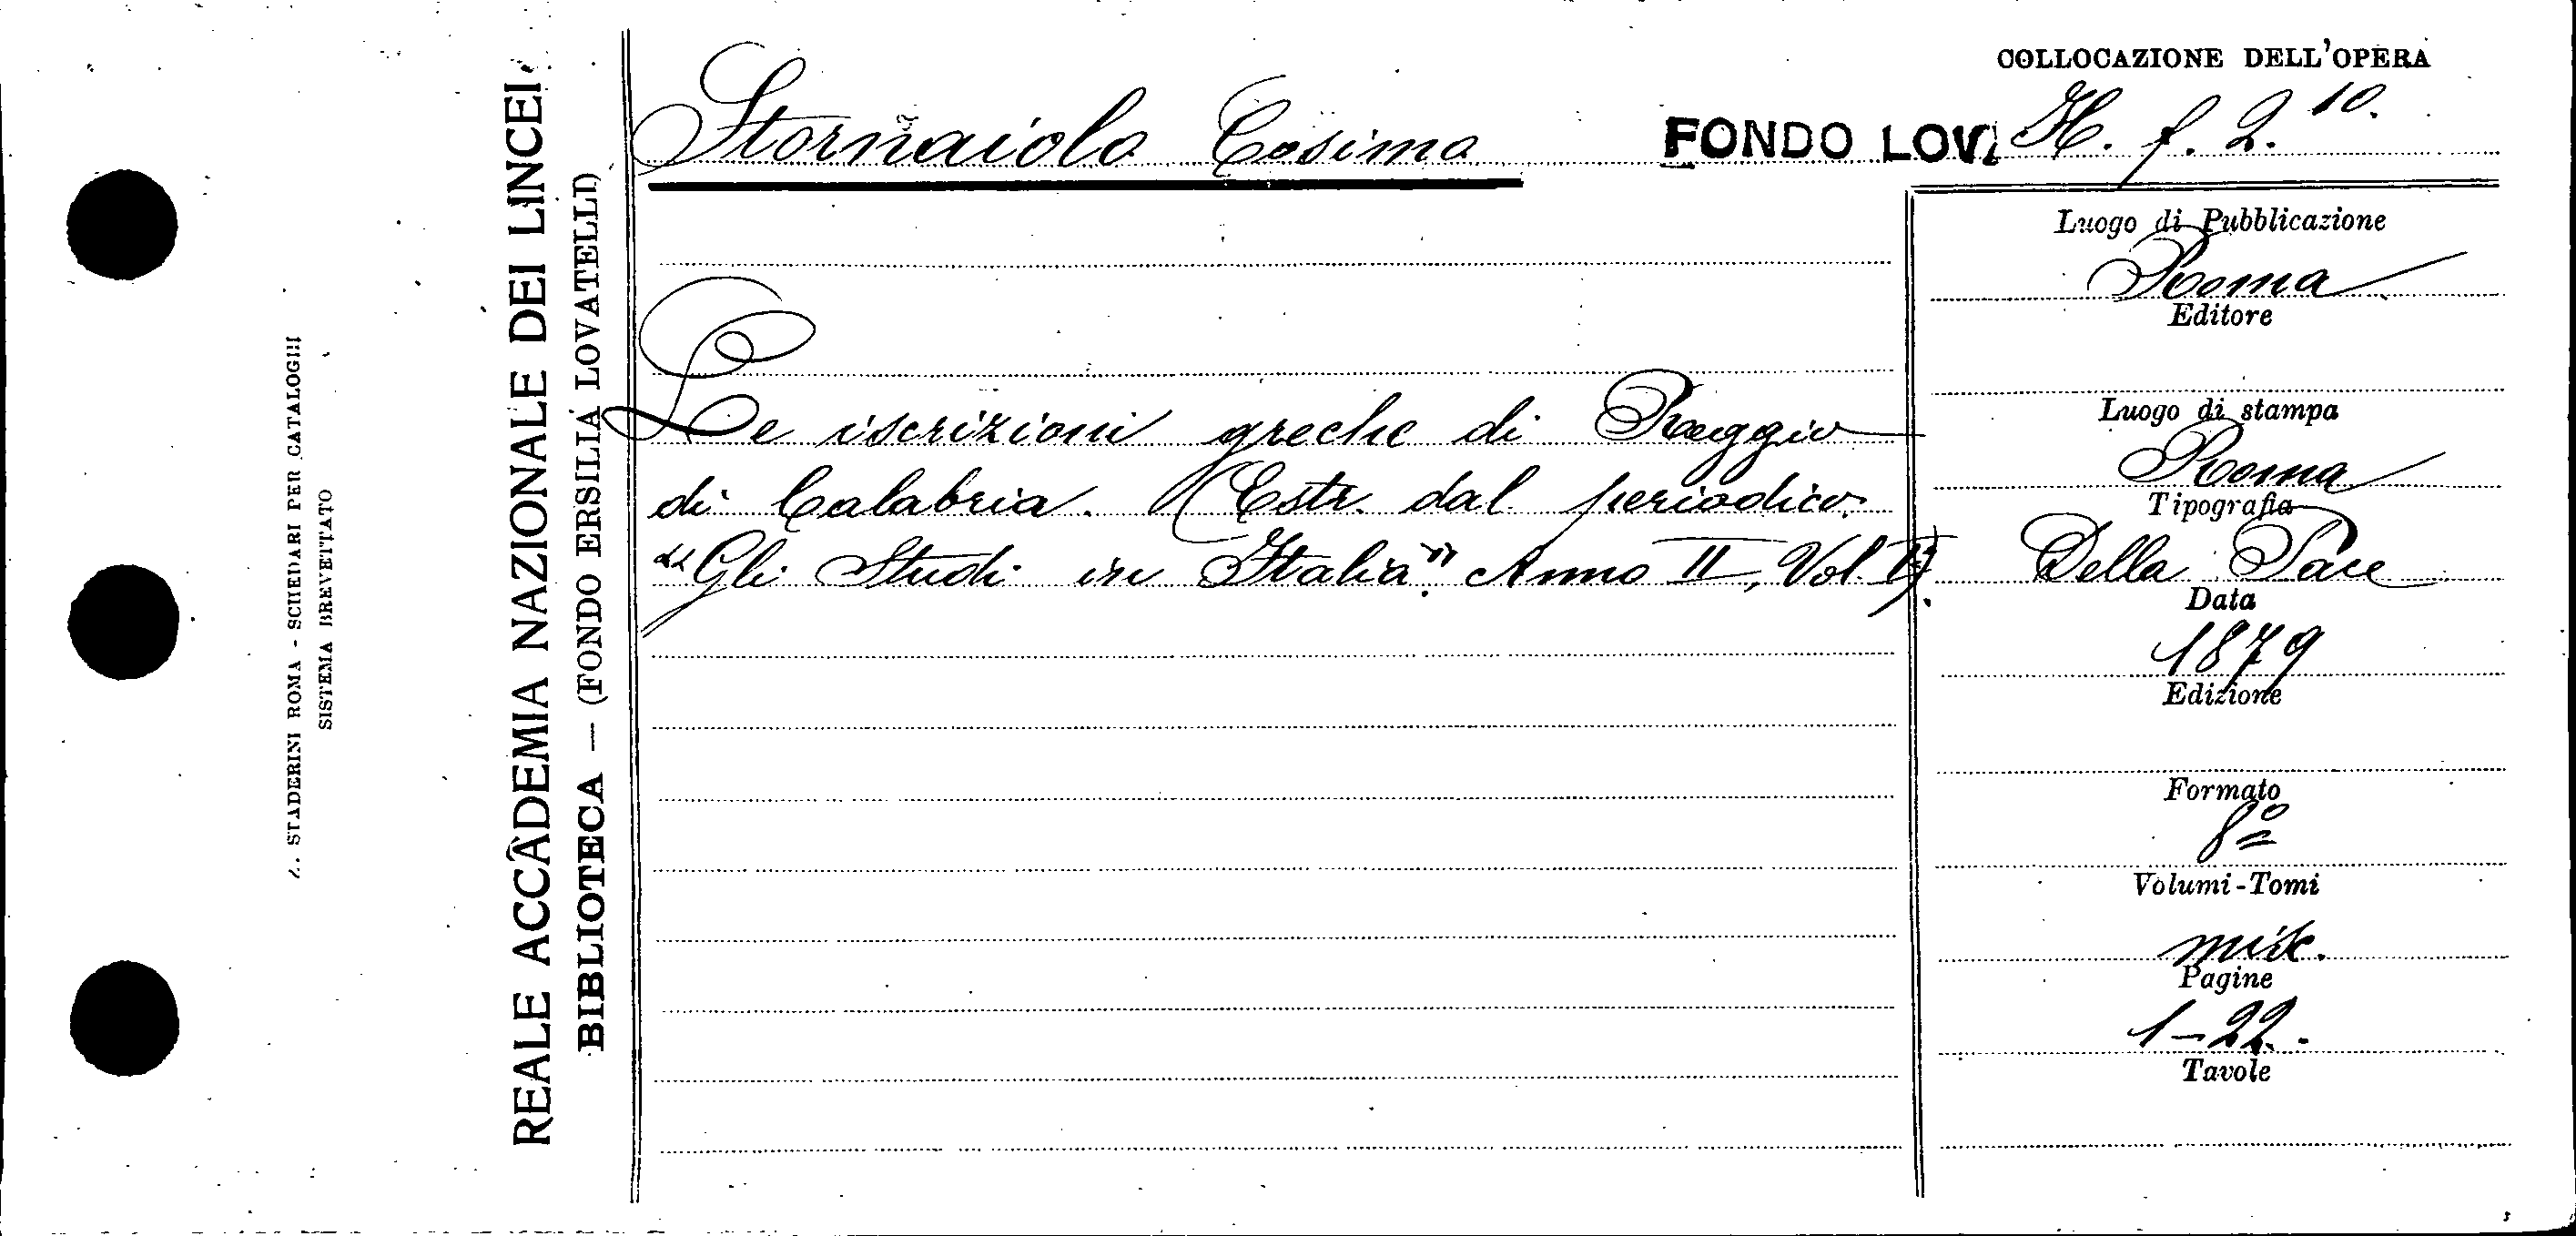 A. STADERINI ROMA - SCHEDARI PER CATALOGHI
SISTEMA BREVETTATO
REALE ACCADEMIA NAZIONALE DEI LINCEI
BIBLIOTECA — (FONDO ERSILIA LOVATELLI)
Stornaiolo Cosimo
COLLOCAZIONE DELL'OPERA
FONDO LOV. H. f. 2. 10.
Le iscrizioni greche di Reggio
di Calabria. (Estr. dal periodico
"Gli Studi in Italia". Anno II, Vol. II).
Luogo di Pubblicazione
Roma
Editore
Luogo di stampa
Roma
Tipografia
Della Pace
Data
1879
Edizione
Formato
8º
Volumi-Tomi
misc.
Pagine
1-22.
Tavole